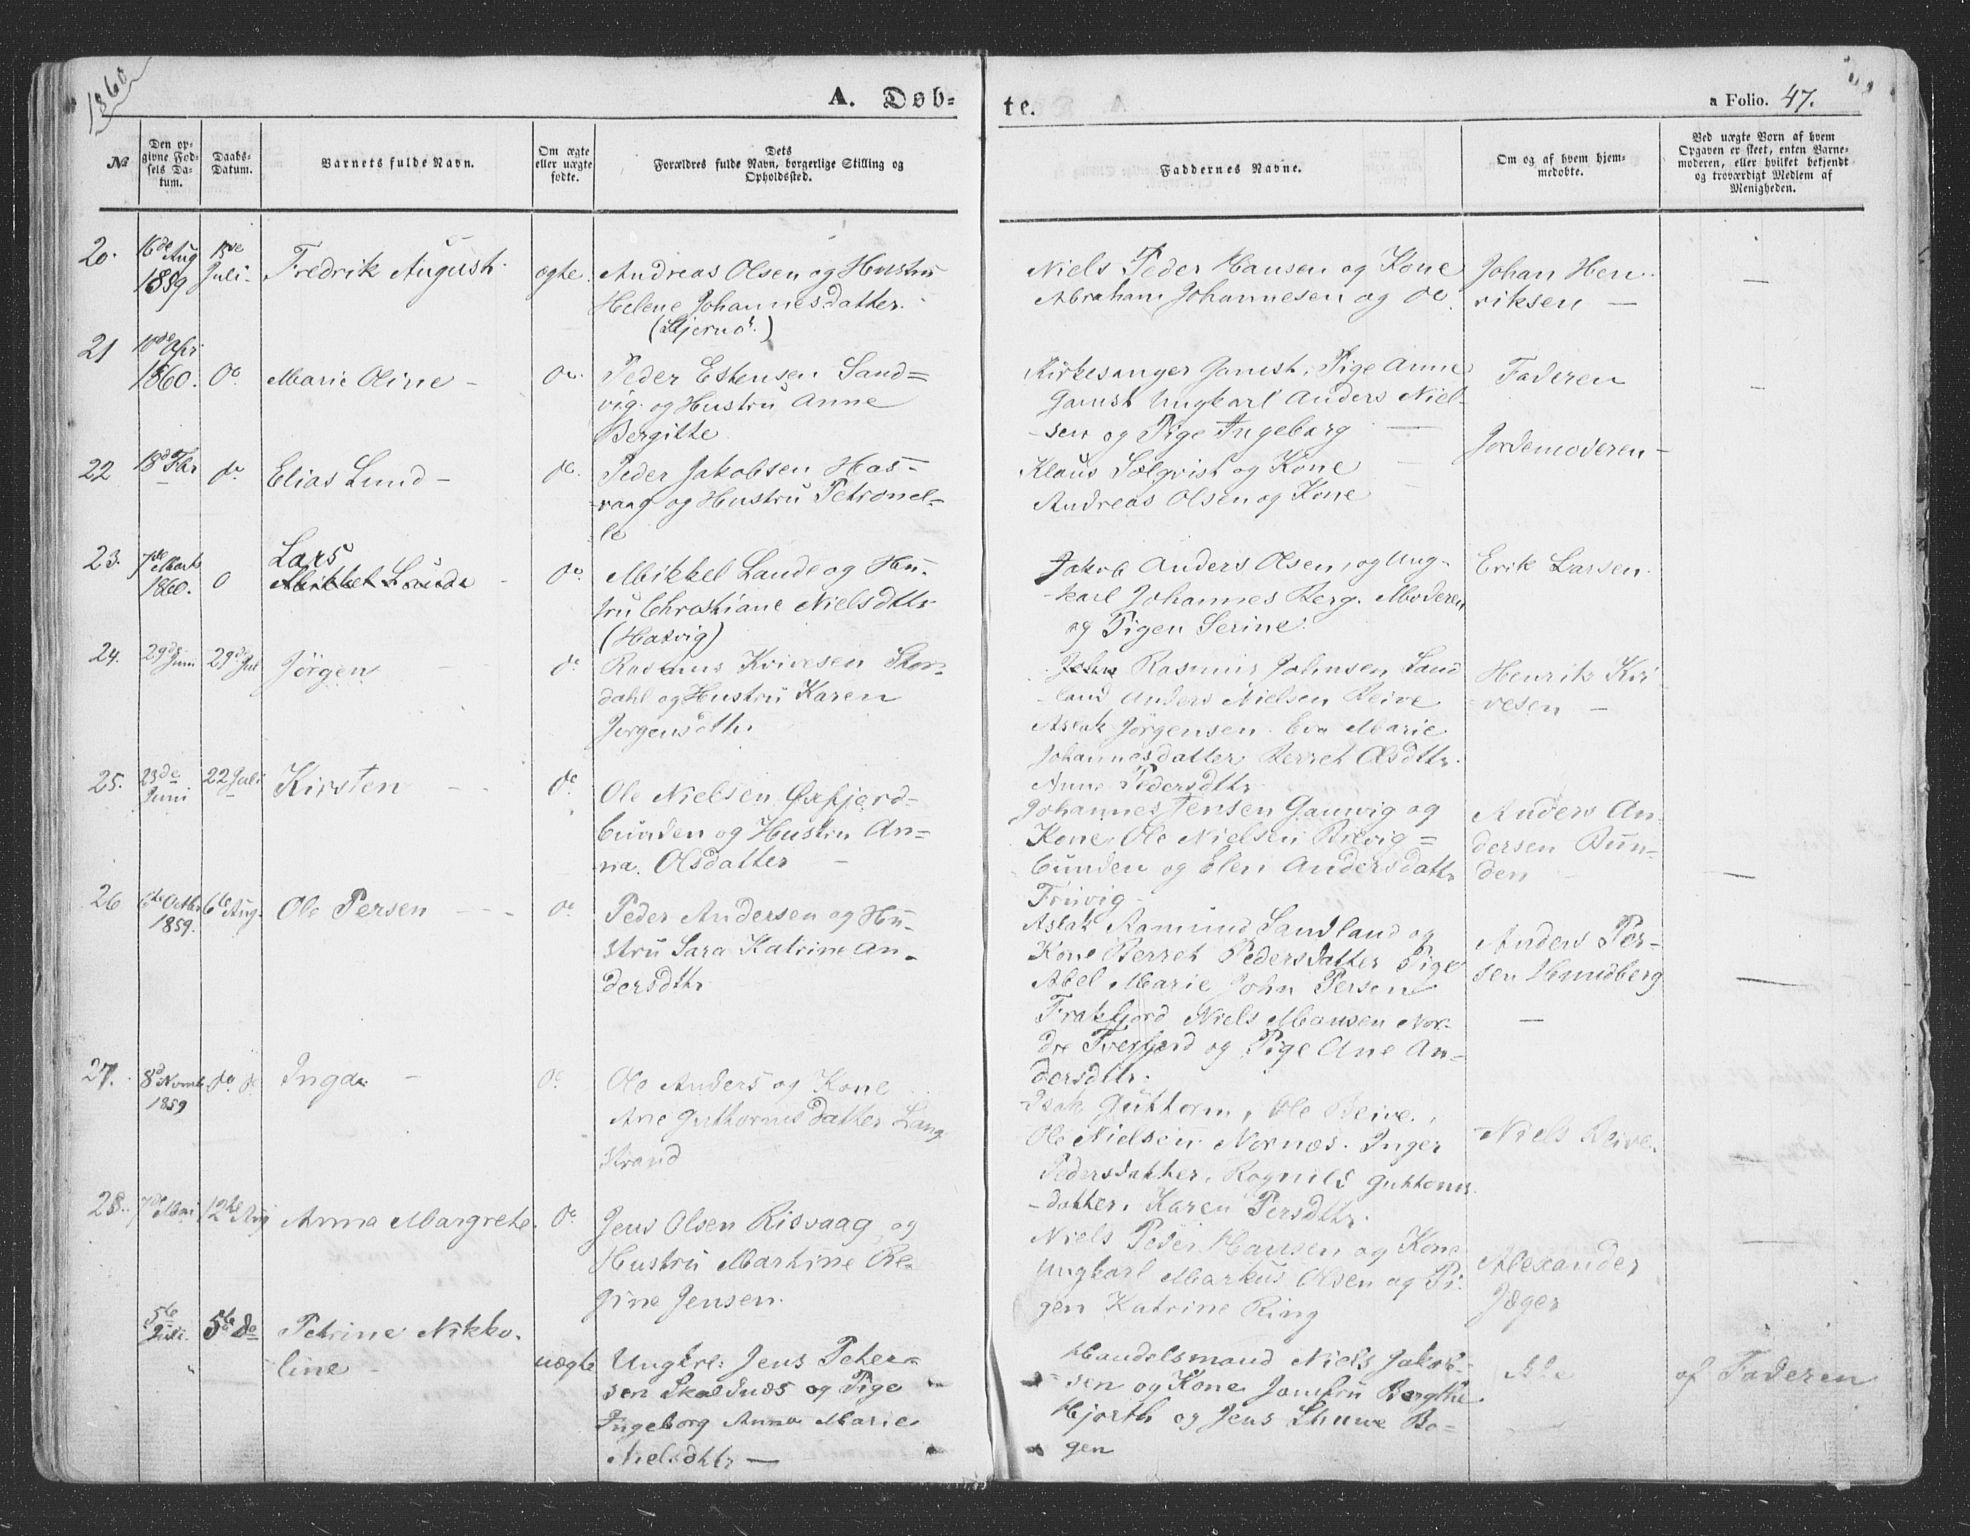 1860
A. Døb-
te.
a Folio. 47.
№
Den op-
givne Fød-
sels Da-
tum.
Daabs-
Datum.
Barnets fulde Navn.
Om ægte
eller uægte
fødte.
Dets
Forældres fulde Navn, borgerlige Stilling og
Opholdssted.
Faddernes Navne.
Om og af hvem hjem-
medøbte.
Ved uægte Børn af hvem
Opgaven er skeet, enten Barne-
moderen, eller hvilket bekjendt
og troværdigt Medlem af
Menigheden.
20.
16de Aug
1859
15de
Juli
Fredrik August
ægte
Andreas Olsen og Hustru
Helene Johannesdatter.
(Stjernö)
Niels Peder Hansen og Kone
Abraham Johannesen og do
Johan Hen
riksen —
—
21
10de Apr
1860.
do
Marie Oline —
do
Peder Estensen Sand=
vig og Hustru Anne
Bergitte
Kirkesanger Gamst, Pige Anne
Gamst Ungkarl Anders Niel-
sen og Pige Ingeborg —
Faderen
—
22
18de
do
Elias Lund —
do
Peder Jakobsen Has-
vaag og Hustru Petronel-
le
Klaus Sølqvist og Kone
Andreas Olsen og Kone
Jordemoderen —
23.
7de Marts
1860.
Lars
Mikkel Lunde
do
Mikkel Lunde og Hu.
stru Christiane Nielsdttr
(Hasvig)
Jakob Anders Olsen, og Ung-
karl Johannes Berg. Moderen
og Pigen Serine.
Erik Larsen
24.
29de Juni
29de Jul
Jörgen
do
Rasmus Kvivesen Stor-
dahl og Hustru Karen
Jorgensdttr.
Rasmus Johnsen Sand
land Anders Nielsen Reive
Aslak Jörgensen. Eva Marie
Johannesdatter Berret Olsdttr.
Anne Pedersdttr
Henrik Kvi
vesen —
25.
23de
Juni
22 Juli
Kirsten
do
Ole Nielsen Øxfjord-
bunden og Hustru An-
na. Olsdatter —
Johannes Jensen Gamvig og
Kone, Ole Nielsen Bredvig=
bunden og Elen Andersdattr
Fruvig
Anders An
dersen Bun-
den
—
26
6te Octbr
1859.
6te Aug.
Ole Persen
do
Peder Andersen og Hu-
stru Sara Katrine An-
dersdttr
Aslak Ramund Sandland og
Kone Berret Pedersdatter Pige
Abel Marie John Persen
Frakfjord Niels Mansen Nor-
dre Tverfjord og Pige Ane An-
dersdttr.
Anders Per-
sen Hamdberg
—
27.
8de Novmb
1859
do do
Inga
do
Ole Anders og Kone
Ane Guttormsdatter Lang
strand
Isak Guttorm, Ole Reive,
Ole Nielsen Nornæs. Inger
Pedersdatter, Ragnild Guttorms
datter. Karen Persdttr.
Niels Reive.
28.
7de Mai
12te Aug
Anna Margrete
do
Jens Olsen Risvaag og
Hustru Martine Re-
gine Jensen.
Niels Peder Hansen og Kone
Ungkarl Markus Olsen og Pi
gen Katrine Ring
Alexander
Jæger
—
5te
Juli
5te do
Petrine Nikko-
line —
uægte
Ungkrl: Jens Peter-
sen Skaldnæs og Pige
Ingeborg Anna Marie
Nielsdttr —
Handelsmand Niels Jakob-
sen og Kone Jomfru Bergithe
Hjorth og Jens Stuwe Bo-
gen
af Faderen